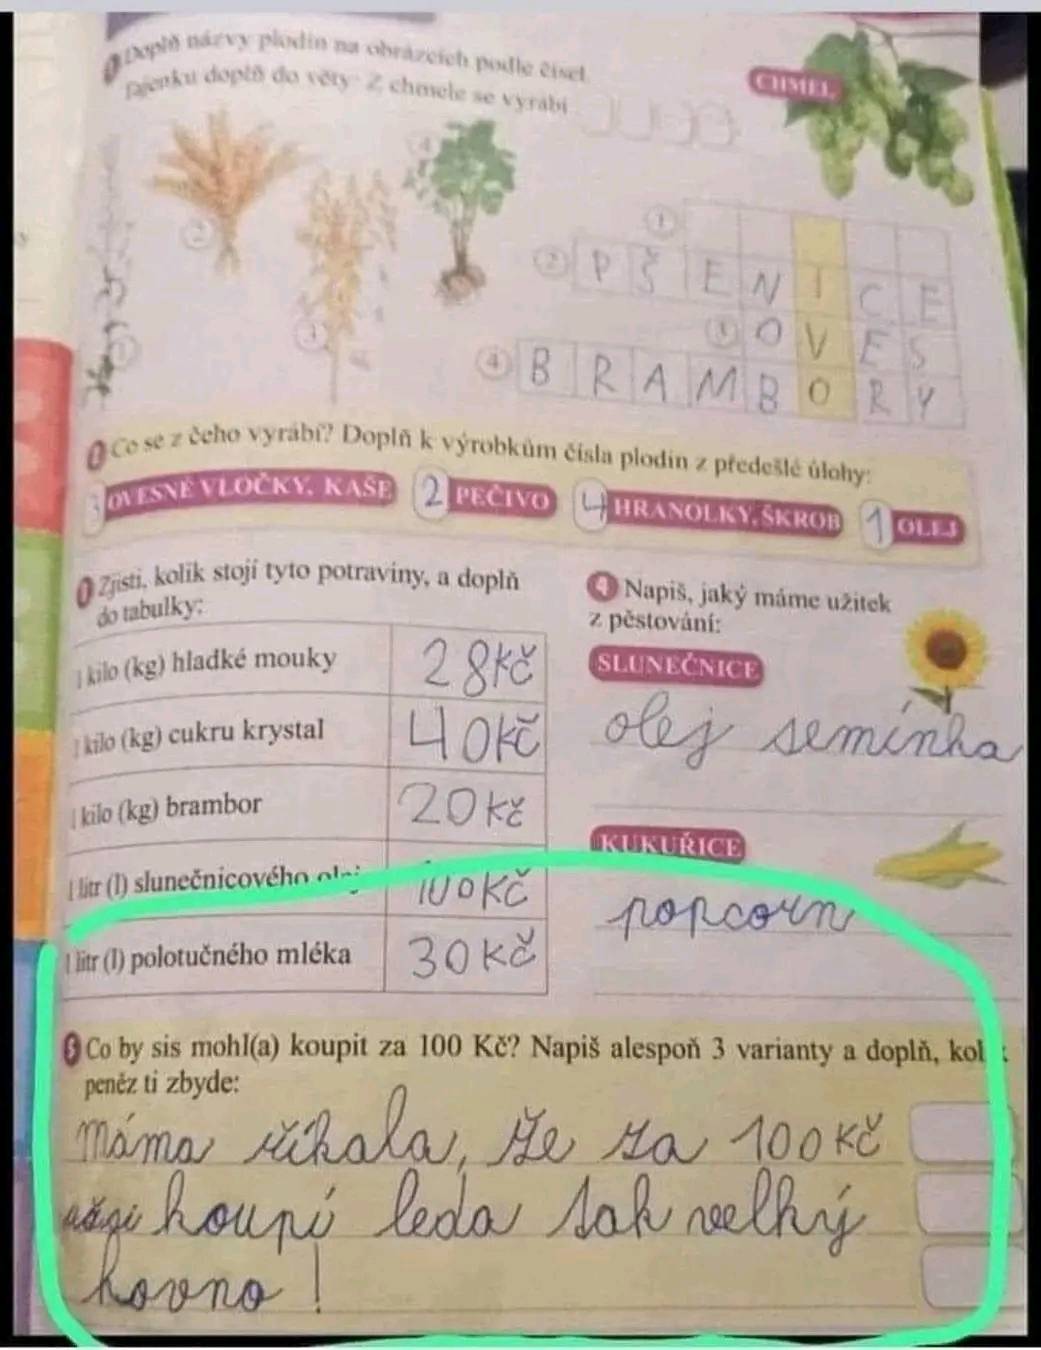 Doplň názvy plodin na obrázcích podle čísel.
Tajenku doplň do věty: Z chmele se vyrábí
CHMEL
1
2 PŠENICE
3 OVES
4 BRAMBORY
4
2
3
1
Co se z čeho vyrábí? Doplň k výrobkům čísla plodin z předešlé úlohy:
3 OVESNÉ VLOČKY, KAŠE 2 PEČIVO 4 HRANOLKY, ŠKROB 1 OLEJ
Zjisti, kolik stojí tyto potraviny, a doplň
do tabulky:
1 kilo (kg) hladké mouky 28kč
1 kilo (kg) cukru krystal 40kč
1 kilo (kg) brambor 20kč
1 litr (l) slunečnicového 100kč
1 litr (l) polotučného mléka 30kč
4 Napiš, jaký máme užitek
z pěstování:
SLUNEČNICE
olej semínka
KUKUŘICE
popcorn
5 Co by sis mohl(a) koupit za 100 Kč? Napiš alespoň 3 varianty a doplň, kol
peněz ti zbyde:
Máma říkala, že za 100kč
koupí leda tak velký
hovno!